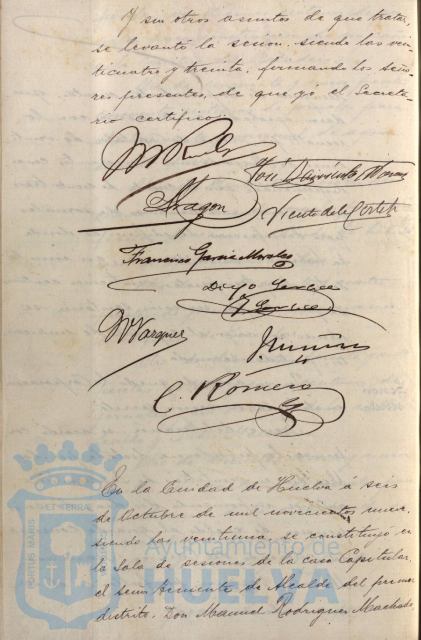 Y sin otros asuntos de que tratar,
se levantó la sesión, siendo las vein-
ticuatro y treinta, firmando los seño-
res presentes, de que yó el Secreta-
rio certifico.
José
Aragon
Vicente de la Corte
Francisco Garcia Morales
Diego
M Vazquez
C. Romero
En la Ciudad de Huelva á seis
de Octubre de mil novecientos nueve,
siendo la veintiuna, se constituyó en
la Sala de sesiones de la casa Capitular,
el señor teniente de Alcalde del primer
distrito, Don Manuel Rodriguez Machado,
Ayuntamiento de
HUELVA
PORTUS MARIS ET TERRAE CUSTODIA